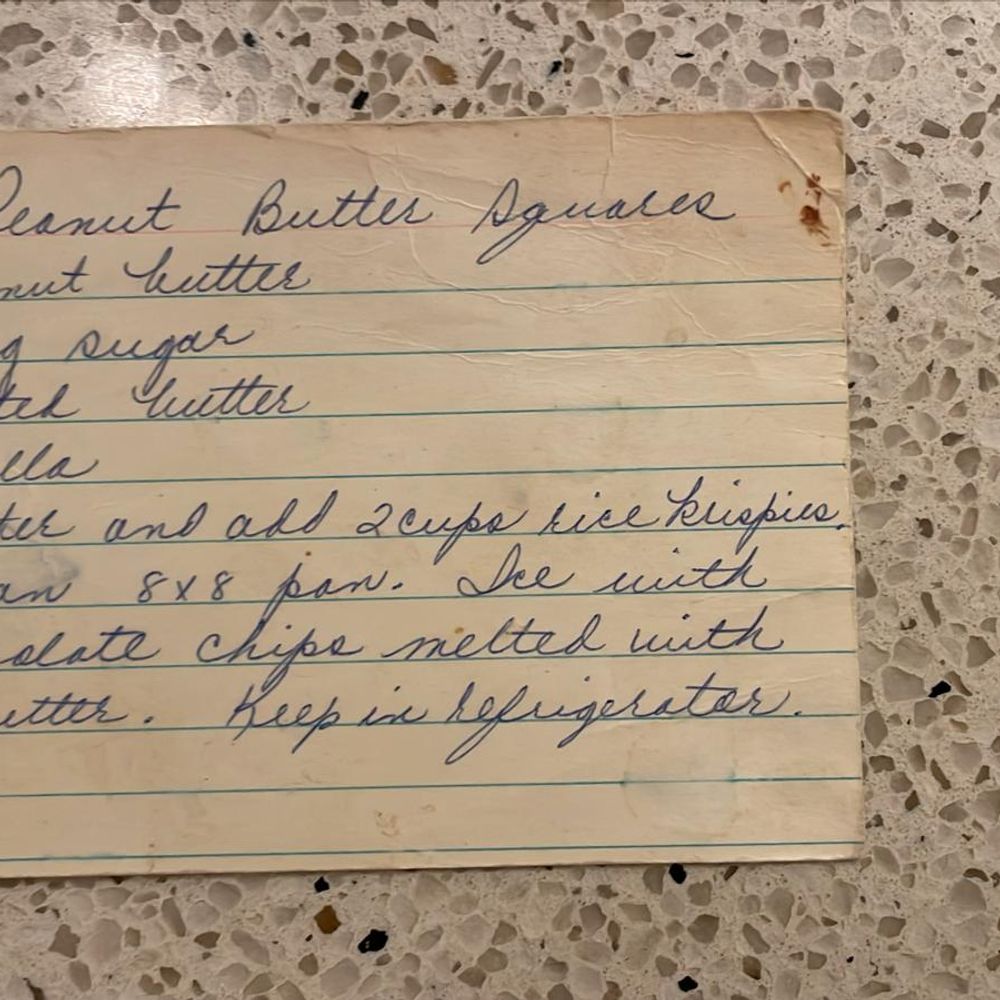 Peanut Butter Squares
nut butter
g sugar
ted butter
lla
ter and add 2 cups rice krispies.
an 8x8 pan. Ice with
olate chips melted with
utter. Keep in refrigerator.